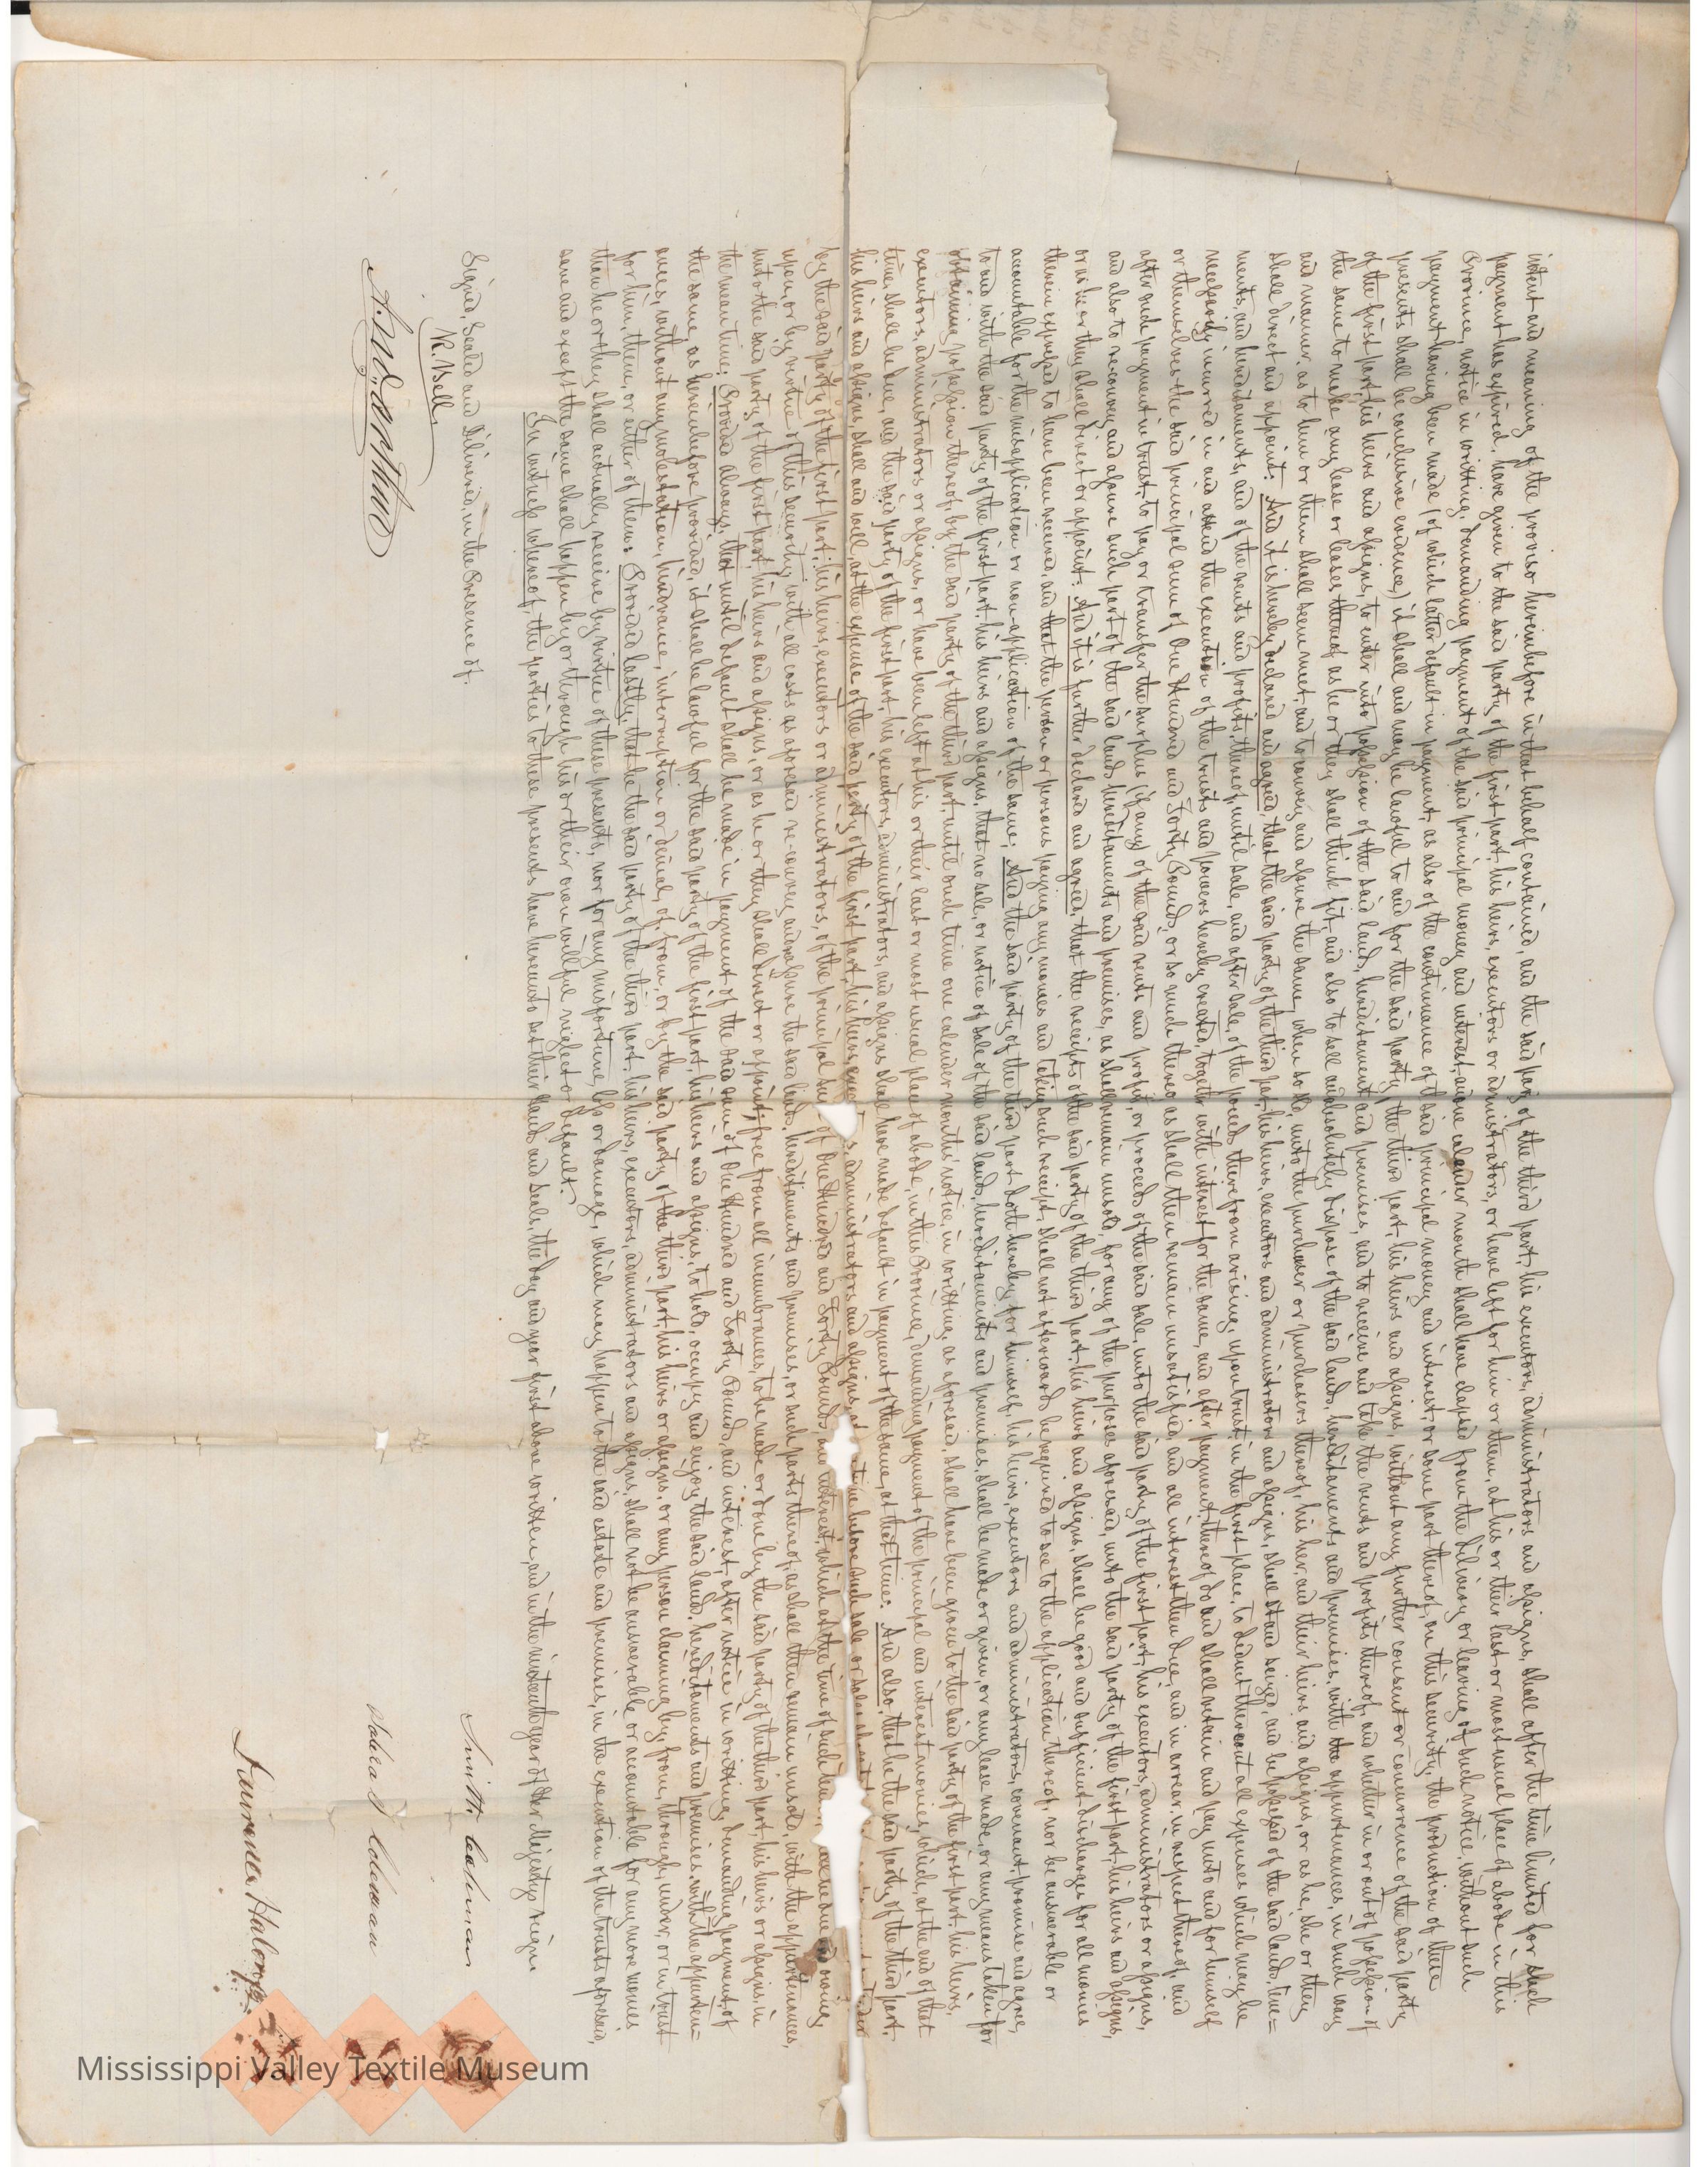 intent and meaning of the proviso hereinbefore in that behalf contained, and the said party of the third part, his executors, administrators and assigns, shall after the time limited for such
payment has expired, have given to the said party of the first part, his heirs, executors or administrators, or have left for him or them, at his or their last or most usual place of abode in this
Province, notice in writing, demanding payment of the said principal money and interest, and one calendar month shall have elapsed from the delivery or leaving of such notice, without such
payment having been made, (of which latter default in payment, as also of the continuance of said principal money and interest, or some part thereof, on this security, the production of these
presents shall be conclusive evidence,) it shall and may be lawful to and for the said party of the third part, his heirs and assigns, without any further consent or concurrence of the said party
of the first part, his heirs and assigns, to enter into possession of the said lands, hereditaments and premises, and to receive and take the rents and profits thereof, and whether in or out of possession of
the same to make any lease or leases thereof as he or they shall think fit, and also to sell and absolutely dispose of the said lands, hereditaments and premises, with the appurtenances, in such way
and manner, as to him or them shall seem meet, and to convey and assure the same, when so sold, unto the purchaser or purchasers thereof, his her, and their heirs and assigns, or as he, she or they
shall direct and appoint: And it is hereby declared and agreed, that the said party of the third part, his heirs, executors and administrators and assigns, shall stand seized, and be possessed of the said lands, tene=
ments, and hereditaments, and of the rents and profits, thereof, until sale, and after sale, of the proceeds therefrom arising, upon trust, in the first place, to deduct thereout all expenses which may be
necessarily incurred in and attend the execution of the trusts and powers hereby created, together with interest for the same, and after payment thereof do and shall retain and pay unto and for himself
or themselves the said principal sum of One Hundred and Forty Pounds, or so much thereof as shall then remain unsatisfied, and all interest then due, and in arrear, in respect thereof, and
after such payment in trust, to pay or transfer the surplus (if any) of the said rents and profits, or proceeds of the said sale, unto the said party of the first part, his executors, administrators or assigns,
and also to re-convey and assure such part of the said lands, hereditaments and premises, as shall remain unsold, for any of the purposes aforesaid, unto the said party of the first part, his heirs and assigns,
or as he or they shall direct or appoint: And it is further declared and agreed, that the receipts of the said party of the third part, his heirs and assigns, shall be good and sufficient discharges for all monies
therein expressed to have been received, and that the person or persons paying any monies and taking such receipt, shall not afterwards be required to see to the application thereof, nor be answerable or
accountable for the misapplication or non-application of the same; And the said party of the third part doth hereby for himself, his heirs, executors and administrators, covenant, promise and agree,
to and with the said party of the first part, his heirs and assigns, that no sale, or notice of sale of the said lands, hereditaments and premises, shall be made or given, or any lease made, or any means taken for
obtaining possession thereof, by the said party of the third part, until such time one calender month's notice, in writing, as aforesaid, shall have been given to the said party of the first part, his heirs,
executors, administrators or assigns, or have been left at his or their last or most usual place of abode, in this Province, demanding payment of the principal and interest monies, which, at the end of that
time, shall be due, and the said party of the first part, his executors, administrators, and assigns shall have made default in payment of the same, at that time: And also, that he the said party of the third part,
his heirs and assigns, shall and will, at the expense of the said party of the first part, his heirs, administrators and assigns, time before such sale or sales
by the said party of the first part, his heirs, executors or administrators, of the principal of One Hundred and Forty Pounds, and interest, which at the time of such owing,
upon, or by virtue of this security, with all costs as aforesaid re-convey and reassure the said lands, hereditaments and premises, or such parts thereof, as shall then remain unsold, with the appurtenances,
unto the said party of the first part, his heirs and assigns, or as he or they shall direct or appoint, free from all incumbrances, to be made or done by the said party of the third part, his heirs or assigns, in
the mean time: Provided always, that until default shall be made in payment of the said sum of One Hundred and Forty Pounds, and interest, after notice in writing, demanding payment of
the same, as hereinbefore provided, it shall be lawful for the said party of the first part, his heirs and assigns, to hold, occupy and enjoy the said lands, hereditaments and premises, with the appurten=
ances, without any molestation, hindrance, interruption or denial, of, from, or by the said party of the third part, his heirs or assigns, or any person claiming by, from, through, under, or in trust
for him, them, or either of them: Provided lastly, that he the said party of the third part, his heirs, executors, administrators and assigns, shall not be answerable or accountable for any more monies
than he or they shall actually receive by virtue of these presents, nor for any misfortune, loss or damage, which may happen to the said estate and premises, in the execution of the trusts aforesaid,
save and except the same shall happen by or through his or their own willful neglect or default.
In witness whereof, the parties to these presents have hereunto set their hands and seals, the day and year first above written, and in the nineteenth year of Her Majesty's reign.
Signed, Sealed and Delivered, in the Presence of.
R. Bell
Smith Coleman
Coleman
Mississippi Valley Textile Museum